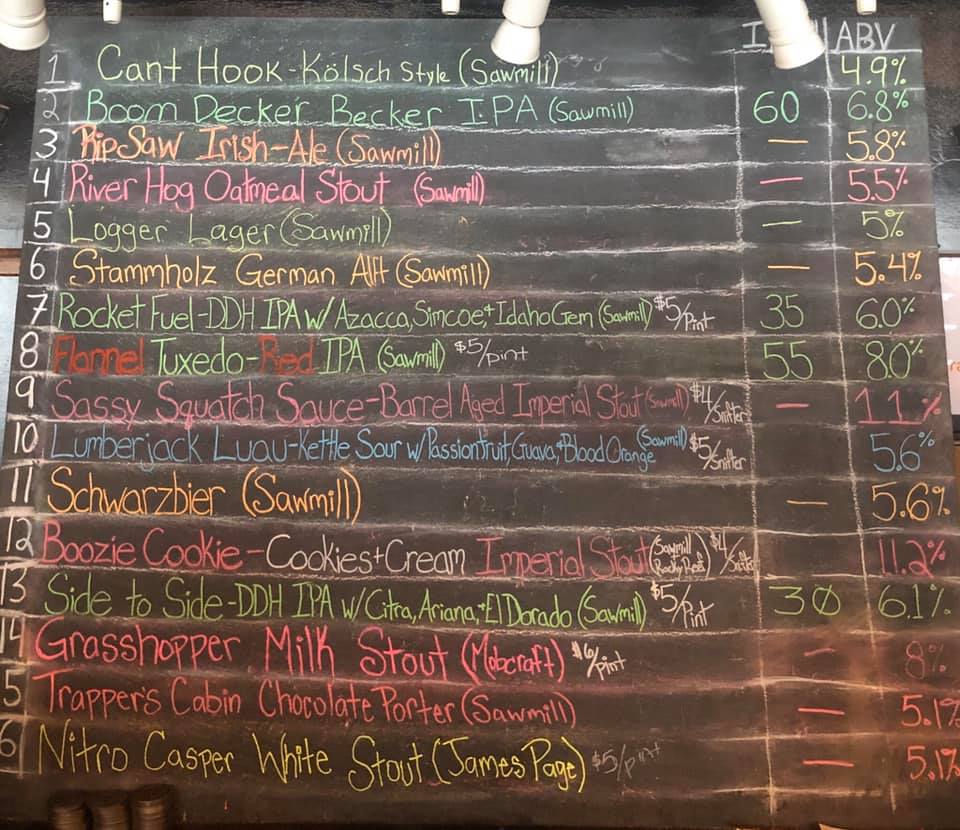 ABV
1 Cant Hook-Kölsch Style (Sawmill) 4.9%
2 Boom Decker Becker I.PA (Sawmill) 60 6.8%
3 RipSaw Irish-Ale (Sawmill) — 5.8%
4 River Hog Oatmeal Stout (Sawmill) — 5.5%
5 Logger Lager (Sawmill) — 5%
6 Stammholz German Alt (Sawmill) — 5.4%
7 Rocket Fuel-DDH IPA w/ Azacca, Simcoe, + Idaho Gem (Sawmill) $5/Pint 35 6.0%
8 Flannel Tuxedo-Red IPA (Sawmill) $5/pint 55 8.0%
9 Sassy Squatch Sauce-Barrel Aged Imperial Stout (Sawmill) $4/Snifter — 11%
10 Lumberjack Luau-Kettle Sour w/Passionfruit, Guava, + Blood Orange (Sawmill) $5/Snifter 5.6%
11 Schwarzbier (Sawmill) — 5.6%
12 Boozie Cookie-Cookies+Cream Imperial Stout (Sawmill $4/Snifter 11.2%
13 Side to Side-DDH IPA w/ Citra, Ariana, + El Dorado (Sawmill) $5/Pint 30 6.1%
14 Grasshopper Milk Stout (Mobcraft) $6/pint — 8%
5 Trapper's Cabin Chocolate Porter (Sawmill) — 5.1%
6 Nitro Casper White Stout (James Page) $5/pint — 5.1%